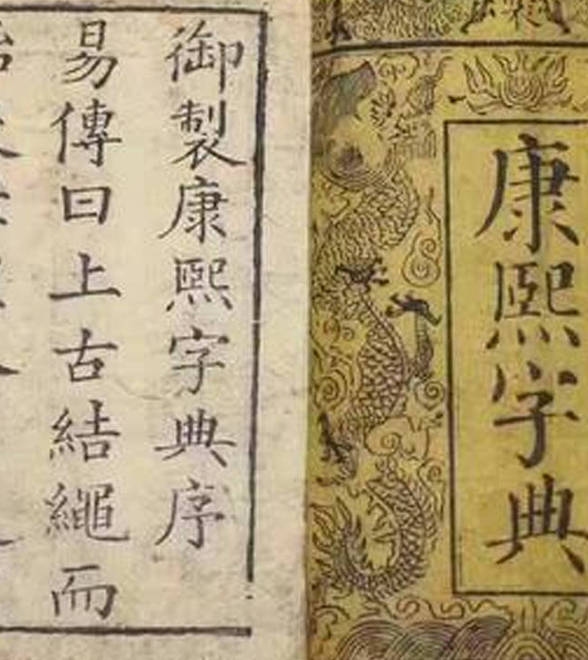 康熙字典
御製康熙字典序
易傳曰上古結繩而